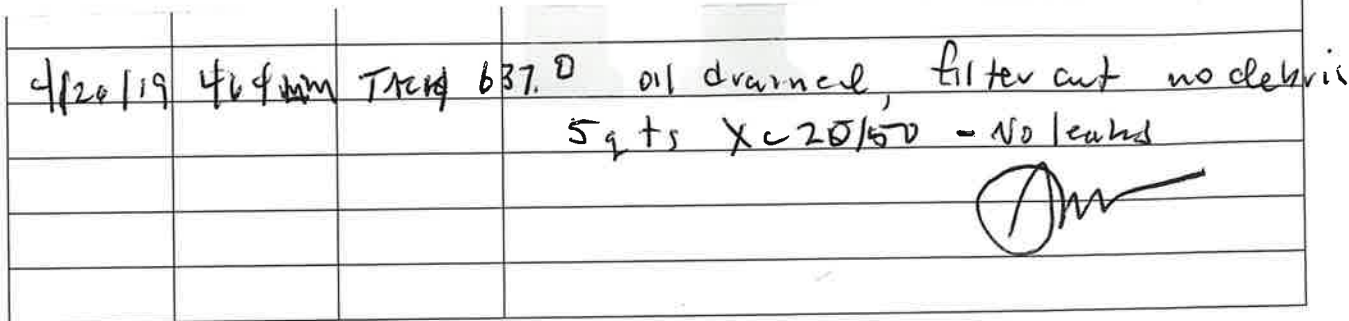 4/20/19 TACH 637.0 oil drained, filter cut no debris
5 qts XC 20/50 - No leaks